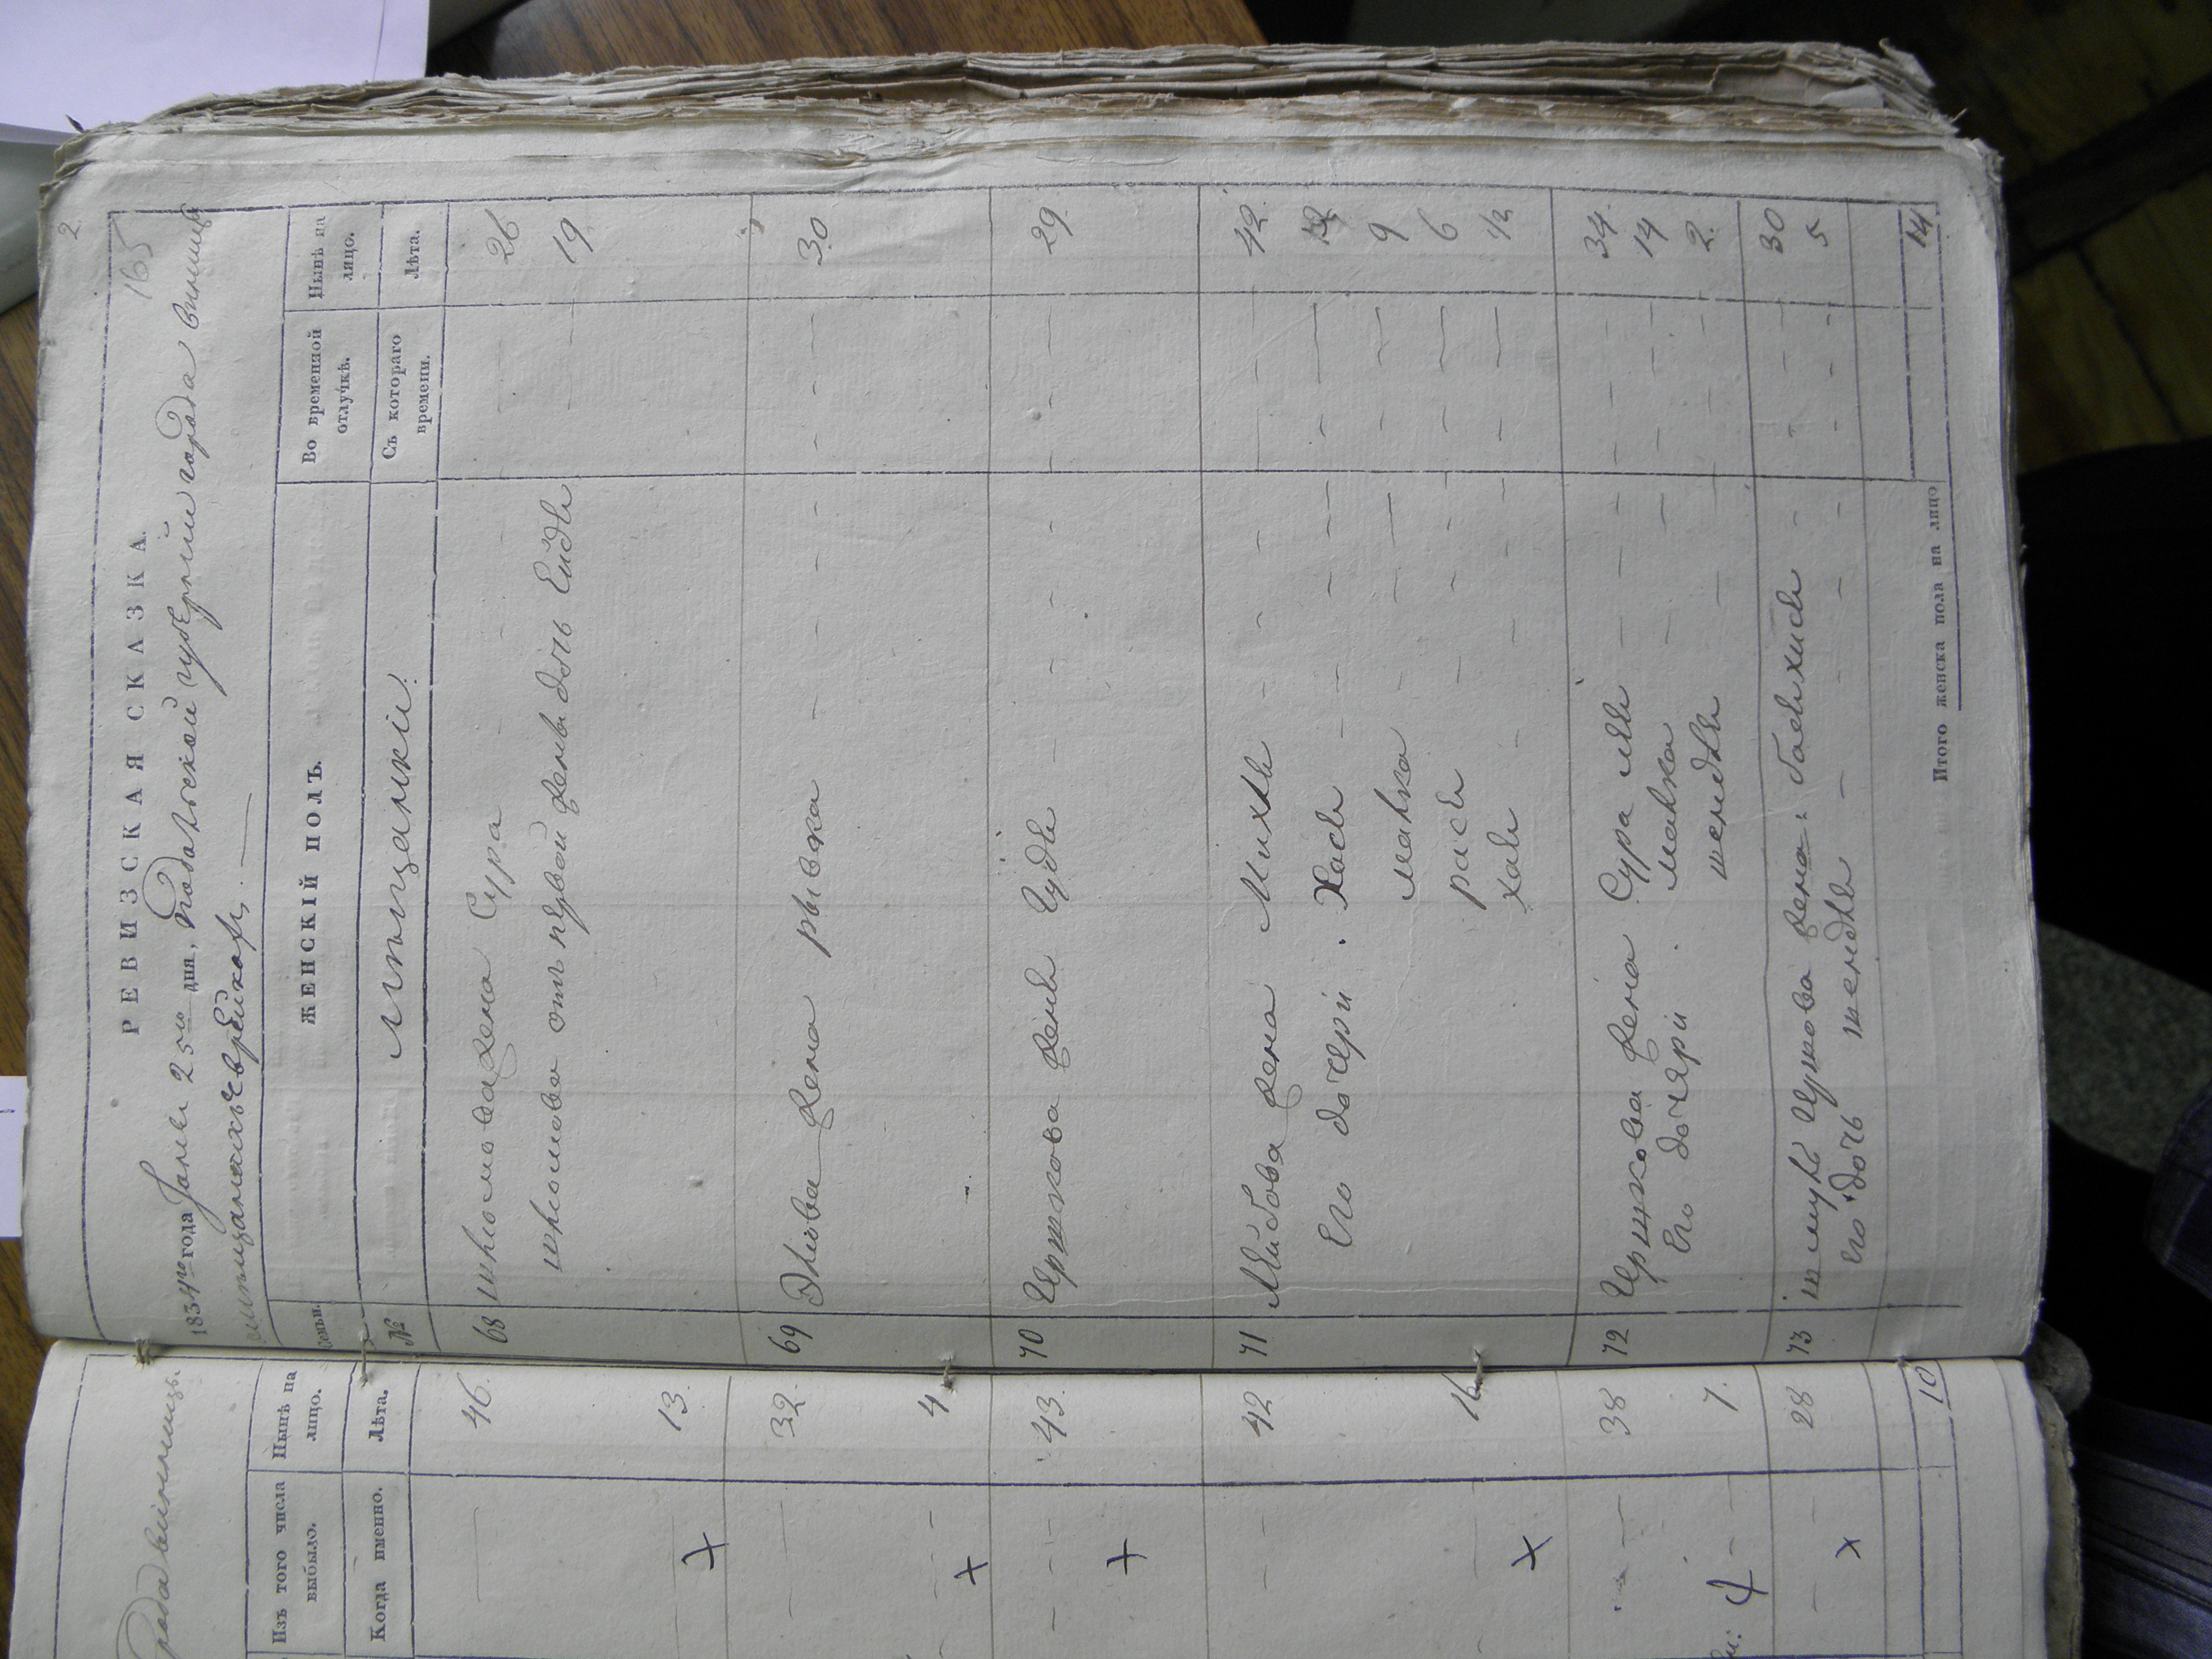 2
165
РЕВИЗСКАЯ СКАЗКА.
1834го года Jюня 25го дня, Подольской губерніи города винницы
мѣщанскихъ еврейкахъ
Семьи.
ЖЕНСКІЙ ПОЛЪ.
Во временной отлучкѣ.
Нынѣ на лицо.
№
мѣщанкіи.
Съ котораго времени.
Лѣта.
68 шлiомова жена Сура 26
шлiомова отъ первой жены дочь Ейдля 19
69 Элiова жена рывка 30
70 Иршкова жена Гудля 29
71 Лейбова жена Михля 42
Его дочери. Хася 12
малка 9
рася 6
хая 1/2
72 Иршкова жена Сура лея 34
Его дочяри. малка 14
шендля 2
73 шмуля Иршкова жена: басяхися 30
Его дочь шендля 5
Итого женска пола на лицо 14
города винницы
Изъ того числа выбыло.
Нынѣ на лицо.
Когда именно.
Лѣта.
46.
13.
32.
4
43.
42
16
38
7.
28
10